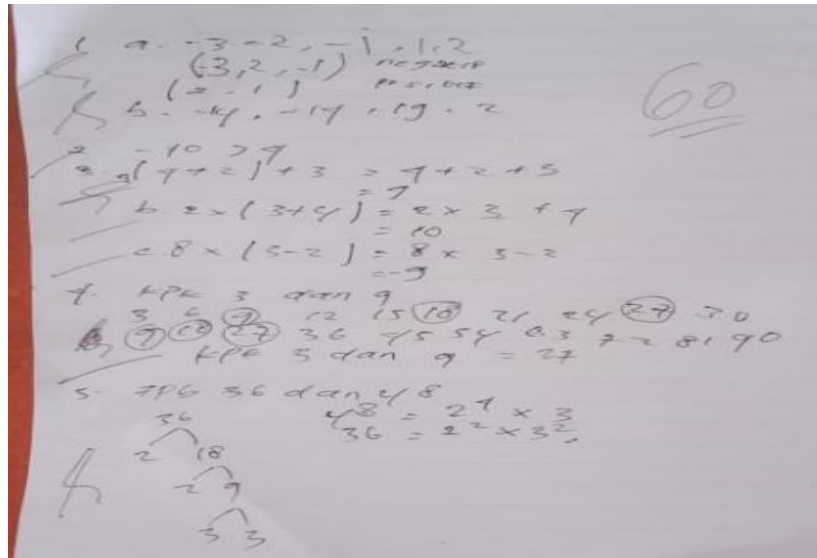 1 a. -3 -2, -1, 1, 2
(-3, 2, -1) negatif
(2 1) positif
60
b. -14, -14, 19, 2
2. -10 > 9
3. a (4 + 2) + 3 = 4 + 2 + 3
= 9
b. 2 x (3+4) = 2 x 3 + 4
= 10
c. 8 x (5-2) = 8 x 5 - 2
4. KPK 3 dan 9
3 6 9 12 15 18 21 24 27 30
9 18 27 36 45 54 63 72 81 90
KPK 3 dan 9 = 27
5. FPB 36 dan 48
48 = 2⁴ x 3
36 = 2² x 3²
36
2 18
2 9
3 3